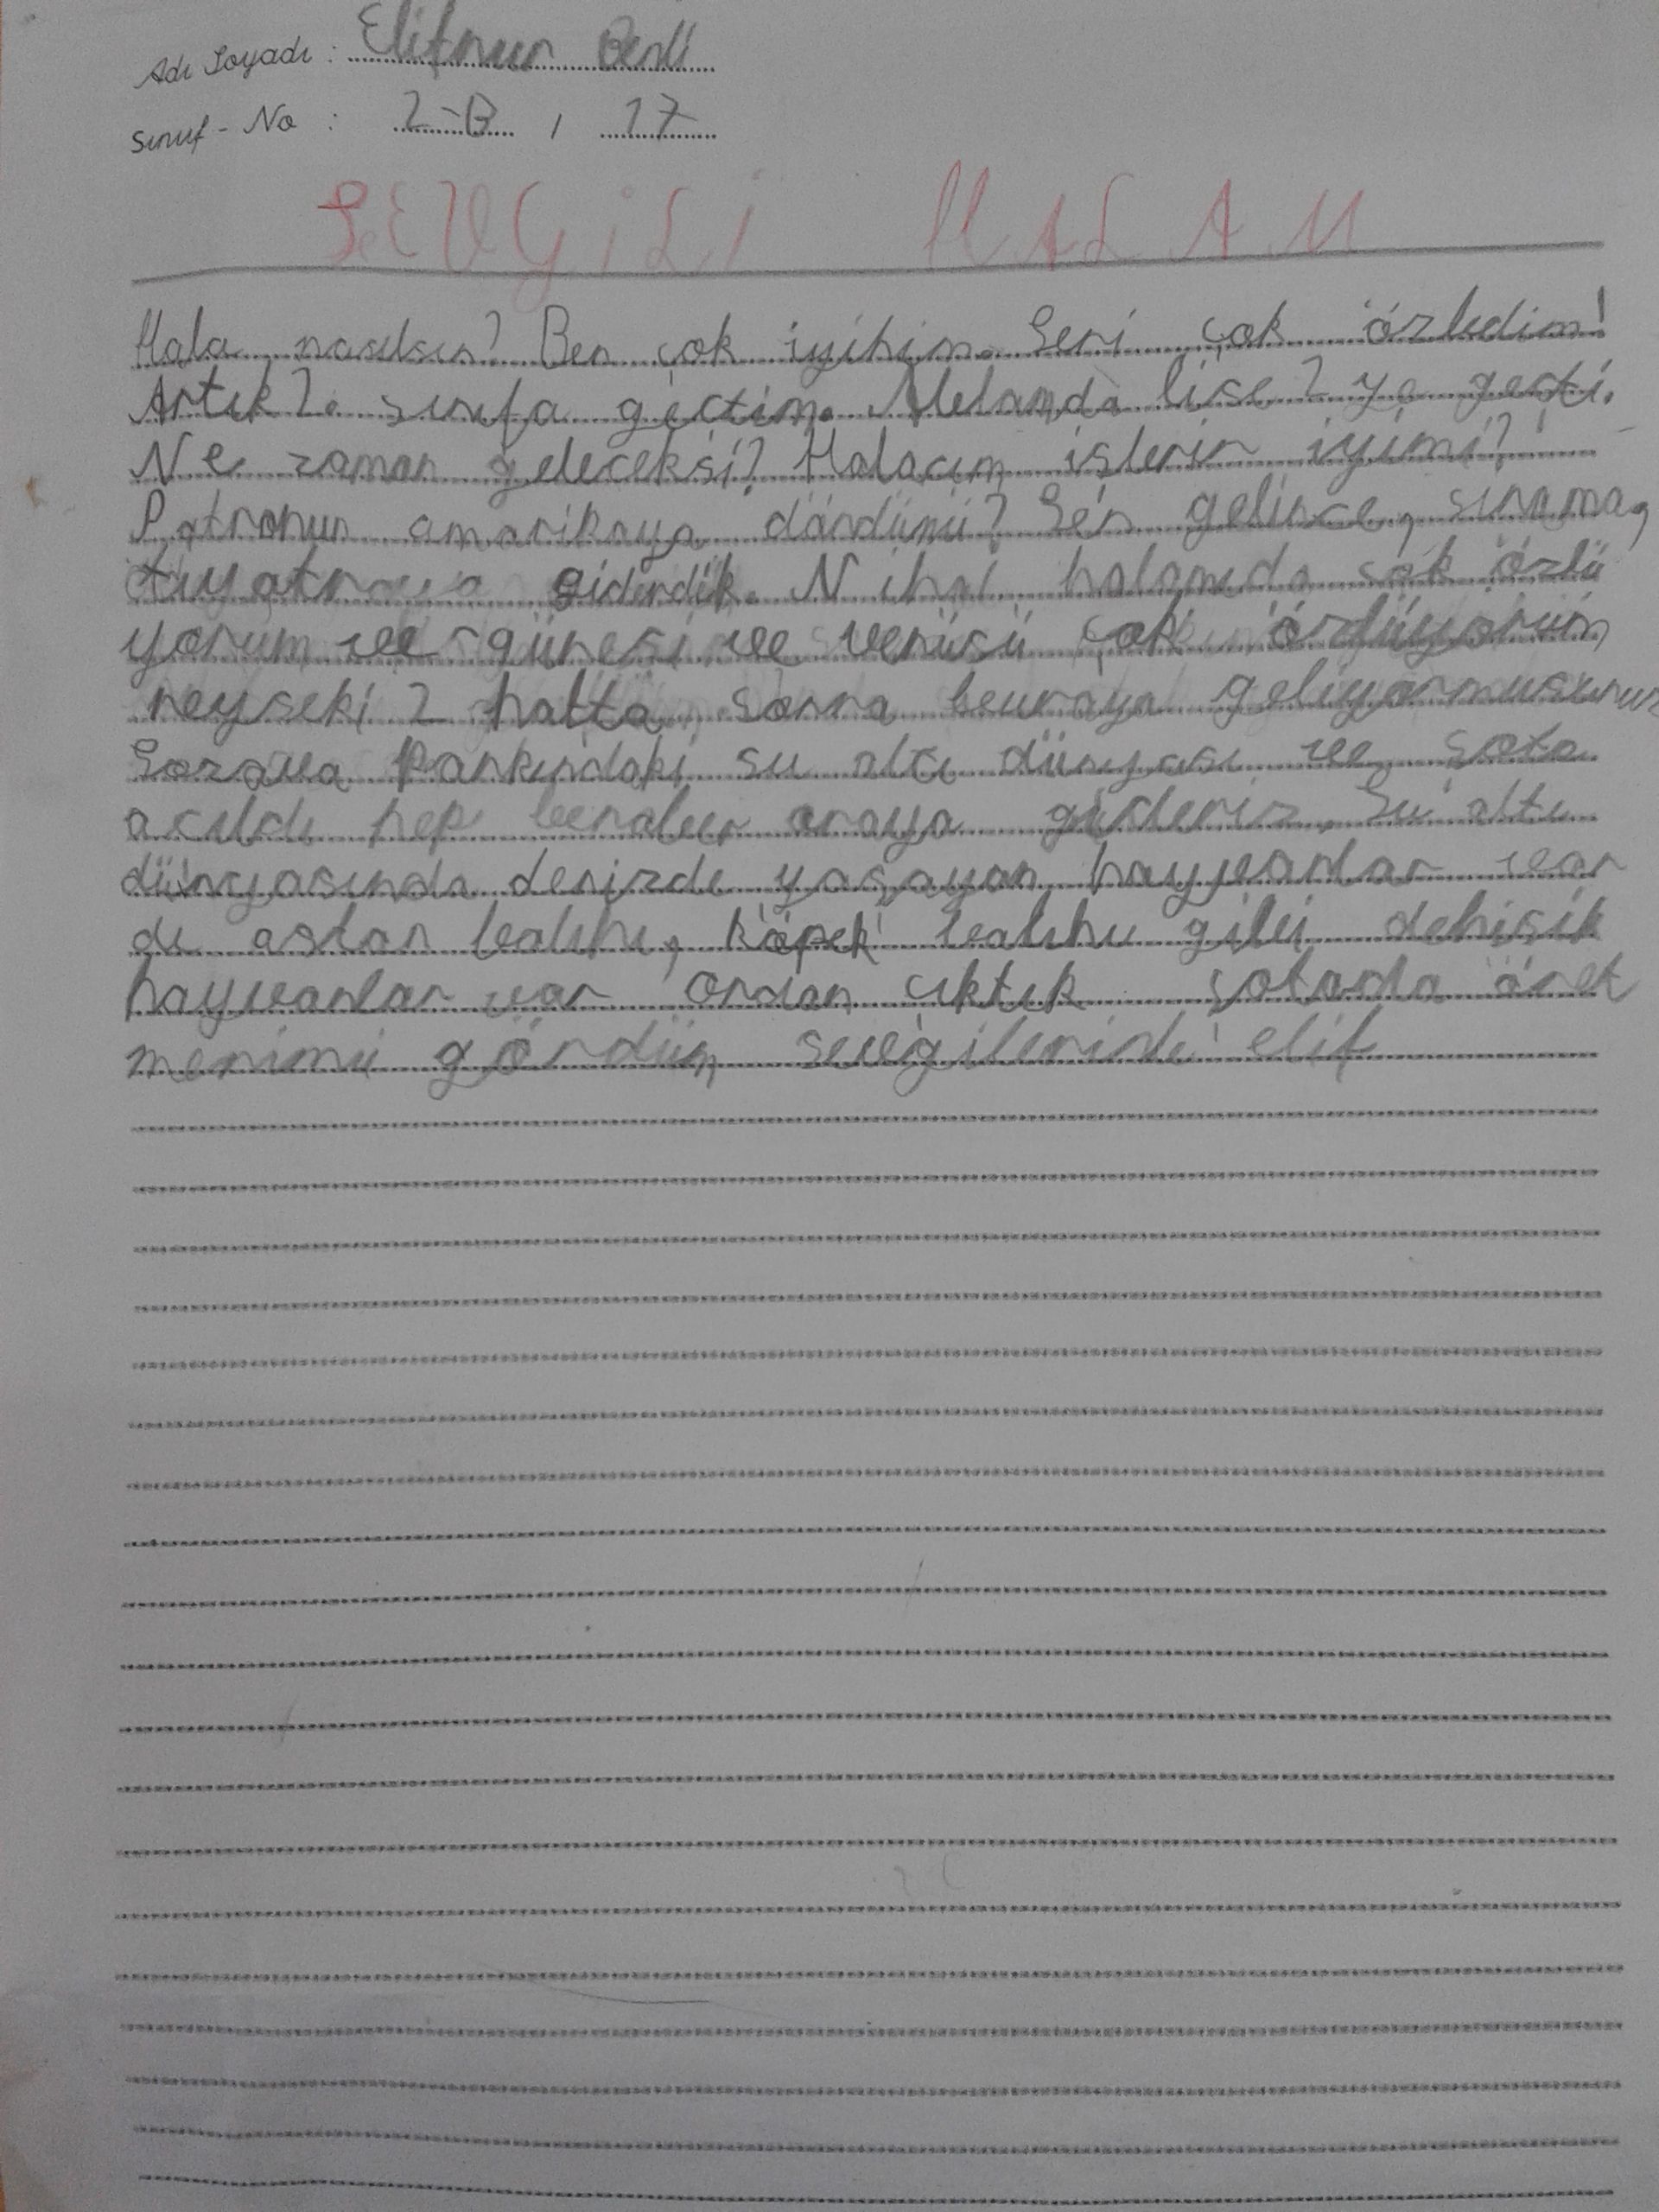 Adı Soyadı : Elifnur
Sınıf - No : 2-B / 17
SEVGİLİ HALAM
Hala nasılsın? Ben çok iyihim. Seni çok özledim!
Artık 2. sınıfa geçtim. Ablamda lise 2 ye geçti.
Ne zaman geleceksi? Halacım işlerin iyimi?
Patronun amarikaya döndümü? Sen gelince, sinama,
tiyatroya giderdik. Nihal halamıda çok özlü
yorum ve güneşi ve venüsü çok özlüyorum
neyseki 2 hafta sonra buraya geliyormusunuz
Sazova Parkındaki su altı dünyası ve şato
açıldı hep beraber oraya gideriz. Su altı
dünyasında denizde yaşayan hayvanlar var
dı aslan balıhı, köpek balıhı gibi dehişik
hayvanlar var ordan çıktık şatoda öret
menimi gördüm sevgileride elif